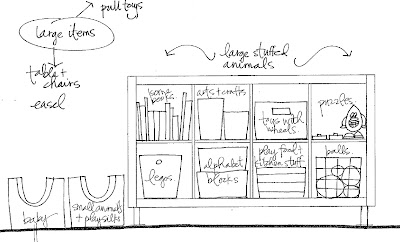 pull toys
large items
table +
chairs
easel
large stuffed
animals
some
books
arts + crafts
toys with
wheels
puzzles
legos
alphabet
blocks
play food +
kitchen stuff
balls
baby
small animals
+ playsilks